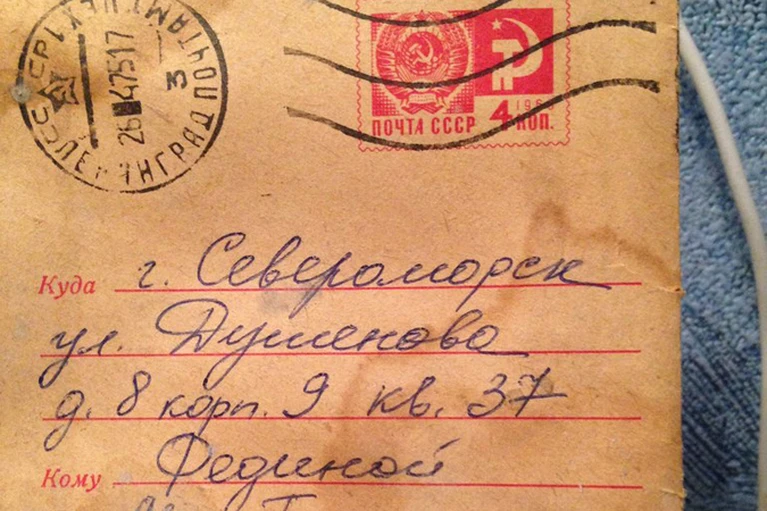 СССР ЛЕНИНГРАД ПОЧТАМТ
26 475 17
3
196
ПОЧТА СССР 4 КОП.
Куда г. Североморск
ул. Душенова
д. 8 корп. 9 кв. 37
Кому Фединой